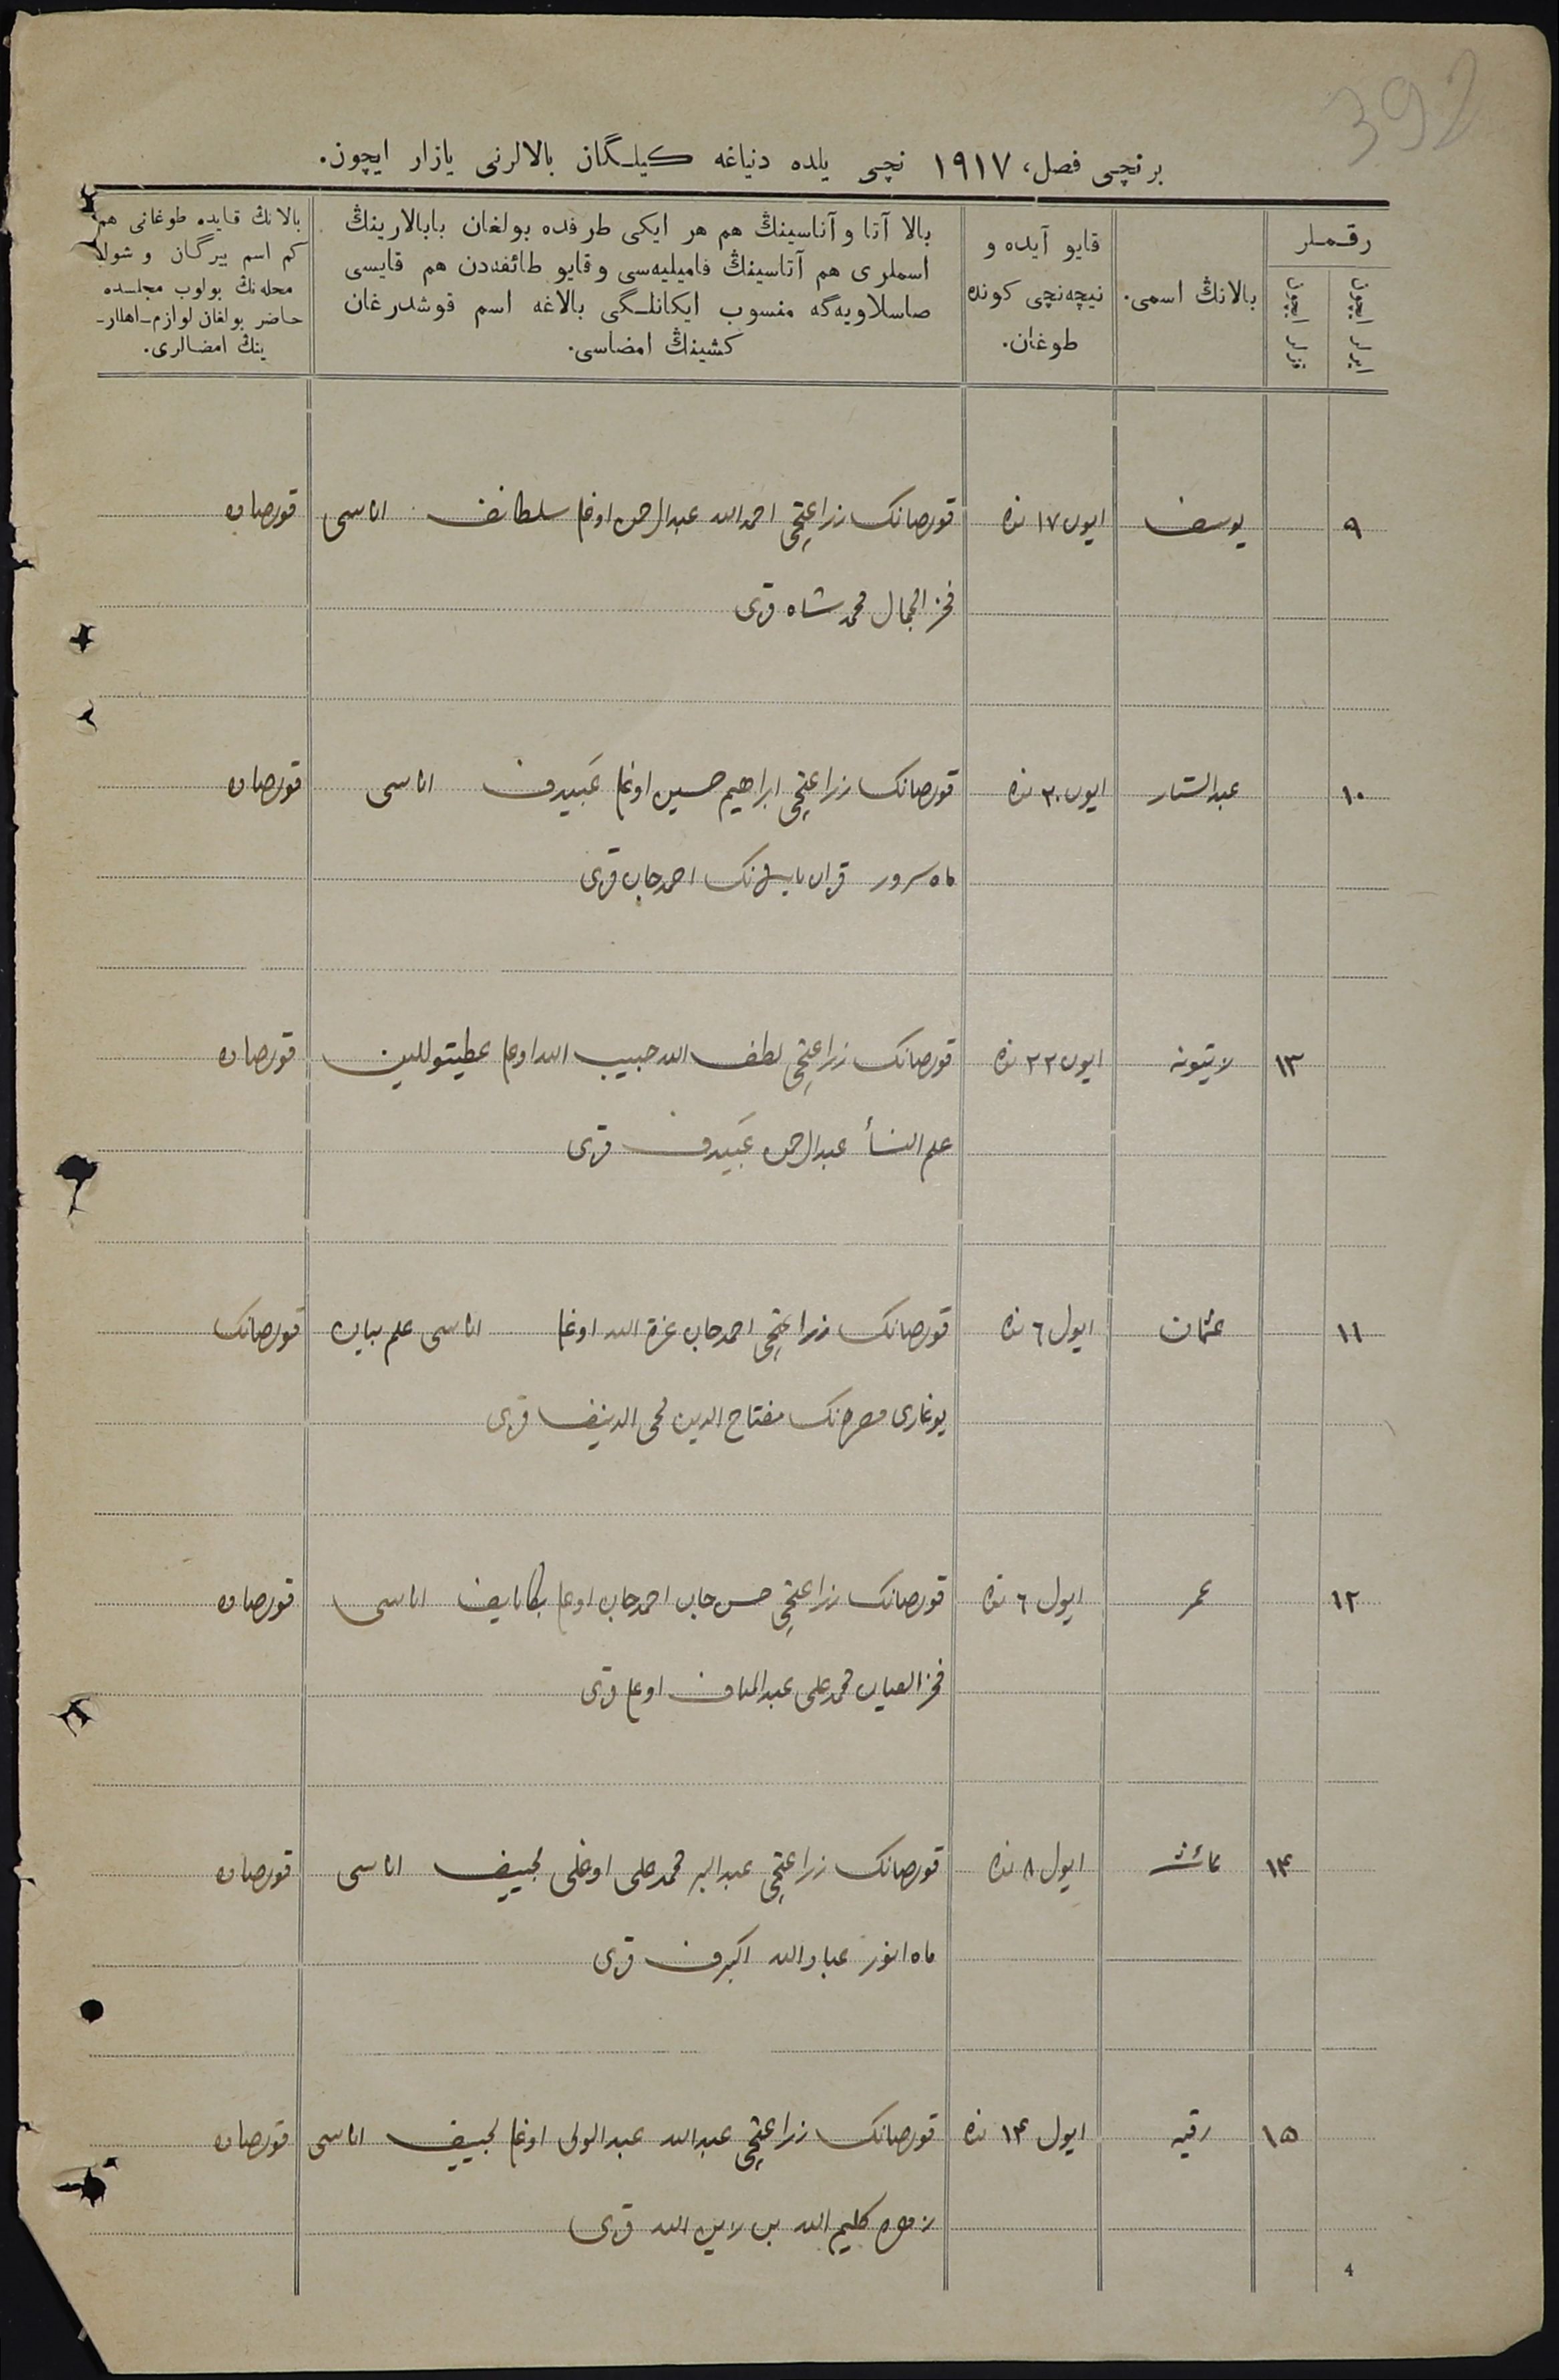 392
برنچی فصل، ١٩١٧ نچی یلده دنیاغه کیلـگان بالالرنی یازار ایچون.
رقـملر
ایرلر ایچون
قزلر ایچون
بالانڭ اسمی.
قایو آیده و
نیچه‌نچی کونده
طوغان.
بالا آتا و آناسینڭ هم هر ایکی طرفده بولغان بابالارینڭ
اسملری هم آتاسینڭ فامیلیه‌سی و قایو طائفه‌دن هم قایسی
صاسلاویه‌گه منسوب ایکانلـگی بالاغه اسم قوشدرغان
کشینڭ امضاسی.
بالانڭ قایده طوغانی هم
کم اسم بیرگان و شولا
محله‌نڭ بولوب مجلـسده
حاضر بولغان لوازم ـ اهللر ـ
ینڭ امضالری.
٩ یوسف ایون ١٧ نده قورصانک زراعتچی احمدالله عبدالرحمن اوغلی سلطانف اناسی قورصاده
فخرالجمال محمدشاه قزی
١٠ عبدالستار ایون ٢٠ نده قورصانک زراعتچی ابراهیم حسین اوغلی عبیدف اناسی قورصاده
ماه سرور احمدجان قزی
١٣ ایون ٢٢ نده قورصانک زراعتچی لطف الله حبیب الله اوغلی قورصاده
علم النسأ عبدالرحمن عبیدف قزی
١١ عثمان ایول ٦ نده قورصانک زراعتچی احمدجان عزة الله اوغلی اناسی علم بیان قورصانک
یوغاری مفتاح الدین محی الدینف قزی
١٢ عمر ایول ٦ نده قورصانک زراعتچی حسن جان احمدجان اوغلی اناسی قورصاده
محمدعلی اوغلی قزی
١٤ عائشه ایول ٨ نده قورصانک زراعتچی عبدالبر محمدعلی اوغلی اناسی قورصاده
ماه انور عبادالله اکبرف قزی
١٥ رقیه ایول ١٤ نده قورصانک زراعتچی عبدالله عبدالولی اوغلی اناسی قورصاده
کلیم الله بن قزی
4